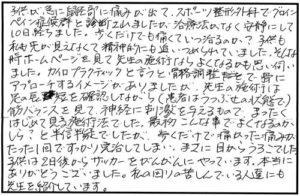 子供が、急に踵に痛みが出て、スポーツ整形外科でグロイン
ペイン症候群と診断されましたが、治療法がなく安静にして
10日経ちました。歩くだけでも痛くていつ治るのか?子供も
私も先が見えなくて精神的にも追いつめられていました。そんな
時ホームページを見て先生の施行ならよくなるかもと思い伺い
ました。カイロプラクティックと言うと、骨格調整、ボキボキして骨に
アプローチするイメージがありましたが、先生の施行は
足の長さを確認しながら(患者はうつぶせの状態で)
筋バランスを見て、神経に刺激を与えるもので、まったく
はじめて見る施行法でした。最初こんな事でよくなるのかし
ら?と半信半疑でしたが、歩くだけで痛かった痛みが
たった1回ですっかり完治してしまい、まさに目からうろこでした。
子供は2日後からサッカーをがんがんにやっています。本当に
ありがとうございました。私の回りの苦しんでいる人達にも
先生を紹介しています。